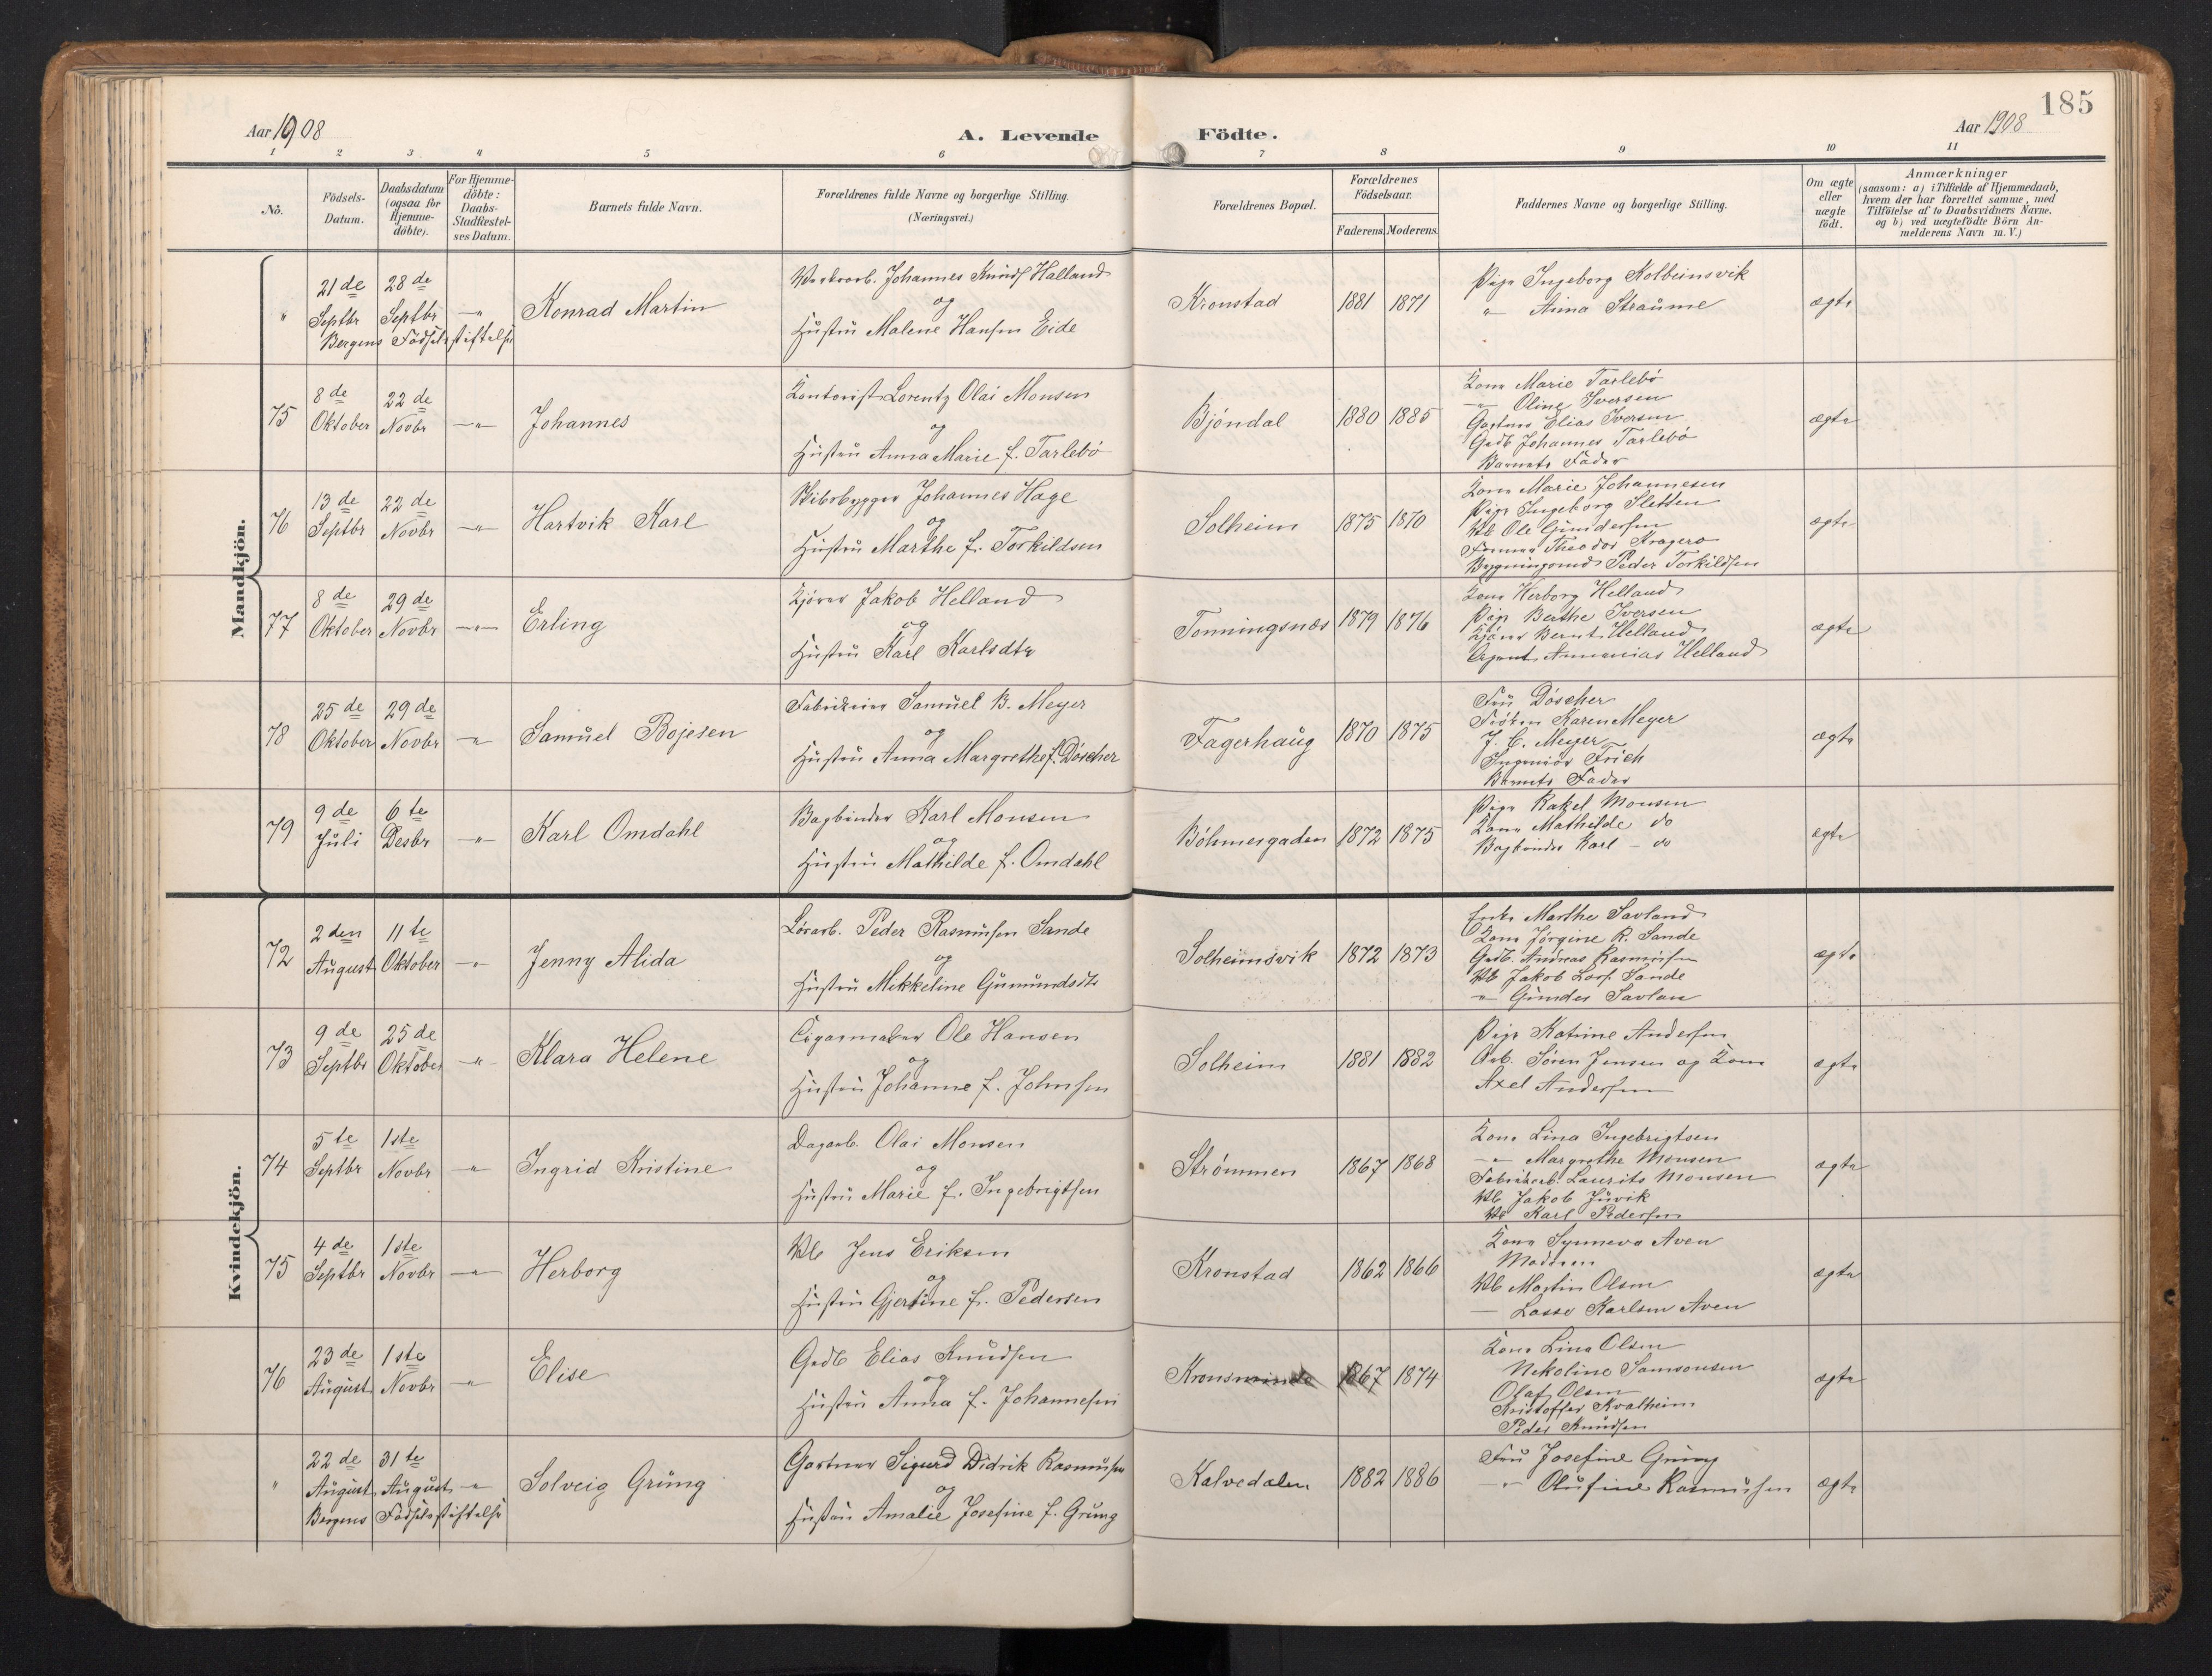 185
Aar 1908
A. Levende
Födte.
Aar 1908
1 2 3 4 5 6 7 8 9 10 11
No.
Födsels-Datum.
Daabsdatum (ogsaa for Hjemme-döbte).
For Hjemme-döbte: Daabs-Stadfæstel-ses Datum.
Barnets fulde Navn.
Forældrenes fulde Navne og borgerlige Stilling.
(Næringsvei.)
Forældrenes Bopæl.
Forældrenes Födselsaar.
Faderens. Moderens.
Faddernes Navne og borgerlige Stilling.
Om ægte eller uægte födt.
Anmærkninger
(saasom: a) i Tilfælde af Hjemmedaab,
hvem der har forrettet samme, med
Tilföielse af to Daabsvidners Navne.
og b) ved uægtefödte Börn An-
melderens Navn m. V.)
Mandkjön.
" 21de Septbr 28de Septbr -"- Konrad Martin
Bergens Fødselsstiftelse
Johannes Knuds Halland
og
Hustru Malene Hansen Eide
Kronstad 1881 1871
Pige Ingeborg Kolbeinsvik
" Anna Straume
ægte
75 8de Oktober 22de Novbr -"- Johannes
Kontorist Lorentz Olai Monsen
og
Hustru Anna Marie f. Tarlebö
Bjöndal 1880 1885
Kone Marie Tarlebö
-"- Oline Iversen
Gartner Elias Iversen
Gadb. Johannes Tarlebö
Barnets Fader
ægte
76 13de Septbr 22de Novbr -"- Hartvik Karl
Skibsbygger Johannes Hage
og
Hustru Marthe f. Torkildsen
Solheim 1875 1870
Kone Marie Johannesen
Pige Ingeborg Sletten
Wb Ole Gundersen
Former Theodor Kragerø
Bygningsmd Peder Torkildsen
ægte
77 8de Oktober 29de Novbr -"- Erling
Kjører Jakob Helland
og
Hustru Karl Karlsdtr
Tonningsnæs 1879 1876
Kone Herborg Helland
Pige Berthe Iversen
Kjører Bernt Helland
Agent Annanias Helland
ægte
78 25de Oktober 29de Novbr -"- Samuel Bojesen
Fabrikeier Samuel B. Meyer
og
Hustru Anna Margrethe f. Döscher
Fagerhaug 1870 1875
Fru Döscher
Frøken Karen Meyer
J. C. Meyer
Ingeniør Frich
Barnets Fader
ægte
79 9de Juli 6te Desbr -"- Karl Omdahl
Bagbinder Karl Monsen
og
Hustru Mathilde f. Omdahl
Böhmergaden 1872 1875
Pige Rakel Monsen
Kone Mathilde do
Bogbinder Karl - do
ægte
Kvindekjön.
72 2den August 11te Oktober -"- Jenny Alida
Peder Rasmusen Sande
og
Hustru Mikkeline Gumundsdtr
Solheimsvik 1872 1873
Enke Marthe Savland
Kone Jörgine R. Sande
Gadb. Andreas Rasmusen
Wb Jakob Lars. Sande
-"- Gunder Savlan
ægte
73 9de Septbr 25de Oktober -"- Klara Helene
Cigarmaker Ole Hansen
og
Hustru Johanne f. Johnsen
Solheim 1881 1882
Pige Katrine Andersen
Arb. Sören Jensen og Kone
Axel Andersen
ægte
74 5te Septbr 1ste Novbr -"- Ingrid Kristine
Dagarb. Olai Monsen
og
Hustru Marie f. Ingebrigtsen
Strömmen 1867 1868
Kone Lina Ingebrigtsen
-"- Margrethe Monsen
Fabrikarb. Laurits Monsen
Wb Jakob Juvik
Wb Karl Pedersen
ægte
75 4de Septbr 1ste Novbr -"- Herborg
Wb Jens Eriksen
og
Hustru Gjertine f. Pedersen
Kronstad 1862 1866
Kone Synneva Aven
Modren
Wb Martin Olsen
— Lasse Karlsen Aven
ægte
76 23de August 1ste Novbr -"- Elise
Gadb Elias Knudsen
og
Hustru Anna f. Johannesen
Kronsminde 1867 1874
Kone Lina Olsen
Nekoline Samsonsen
Olaf Olsen
Kristoffer Kvalheim
Peder Knudsen
ægte
" 22de August 31te August -"- Solveig Grung
Bergens Fødselsstiftelse
Gartner Sigurd Didrik Rasmusen
og
Hustru Amalie Josefine f. Grung
Kalvedalen 1882 1886
Fru Josefine Grung
-"- Olufine Rasmussen
ægte